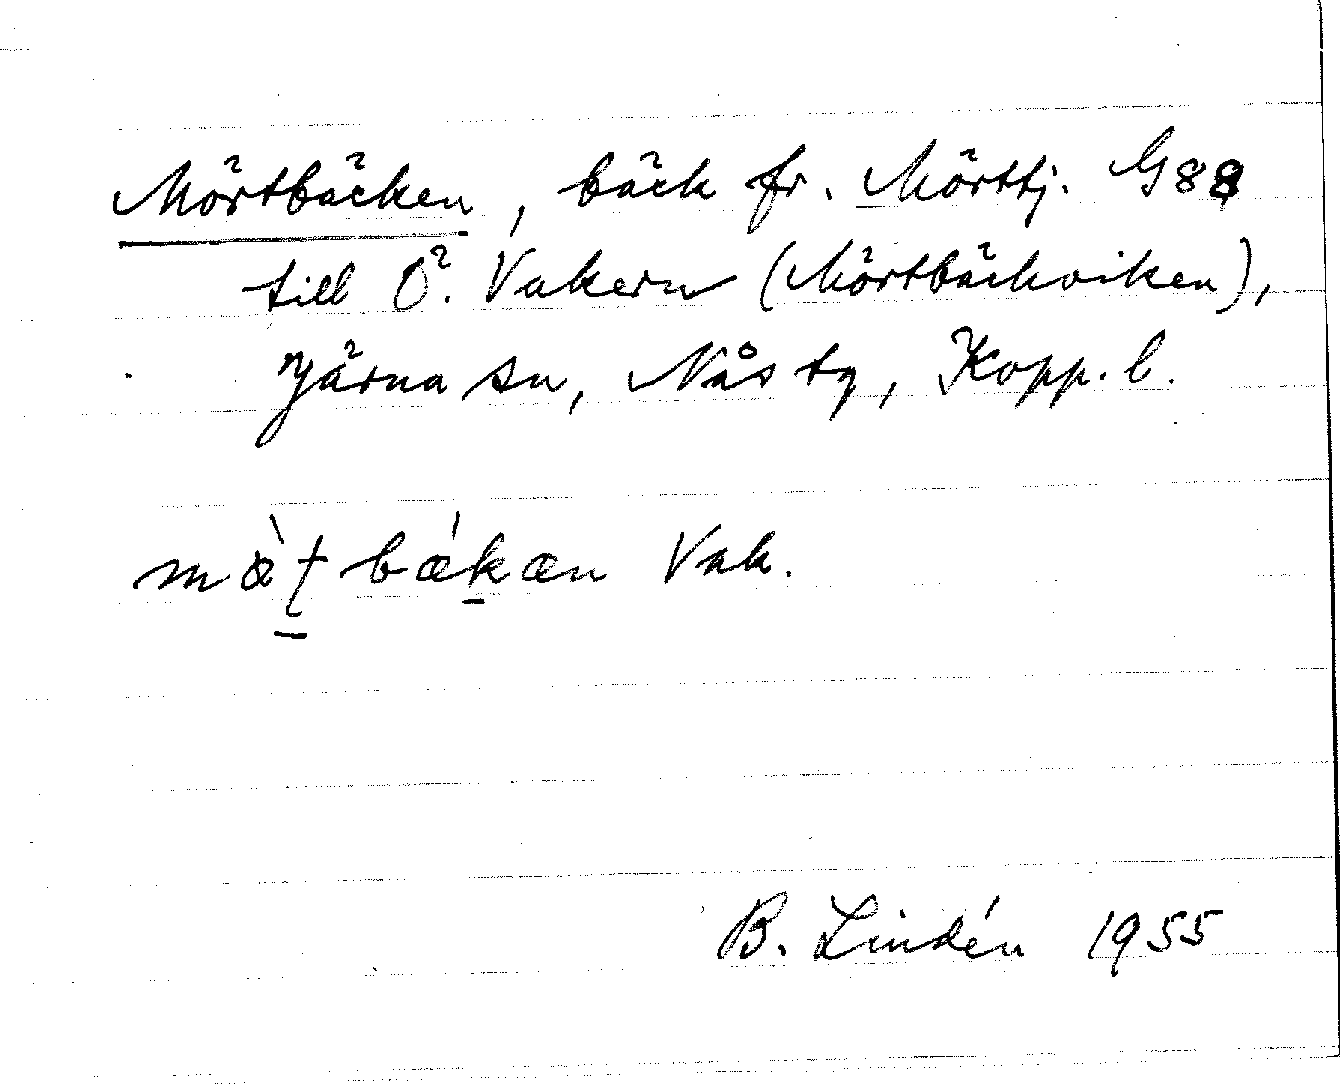 Mörtbäcken, bäck fr. Mörttj. G88
till Ö. Vakern (Mörtbäckviken),
Järna sn, Nås tg, Kopp. l.
Vak.
B. Lindén 1955